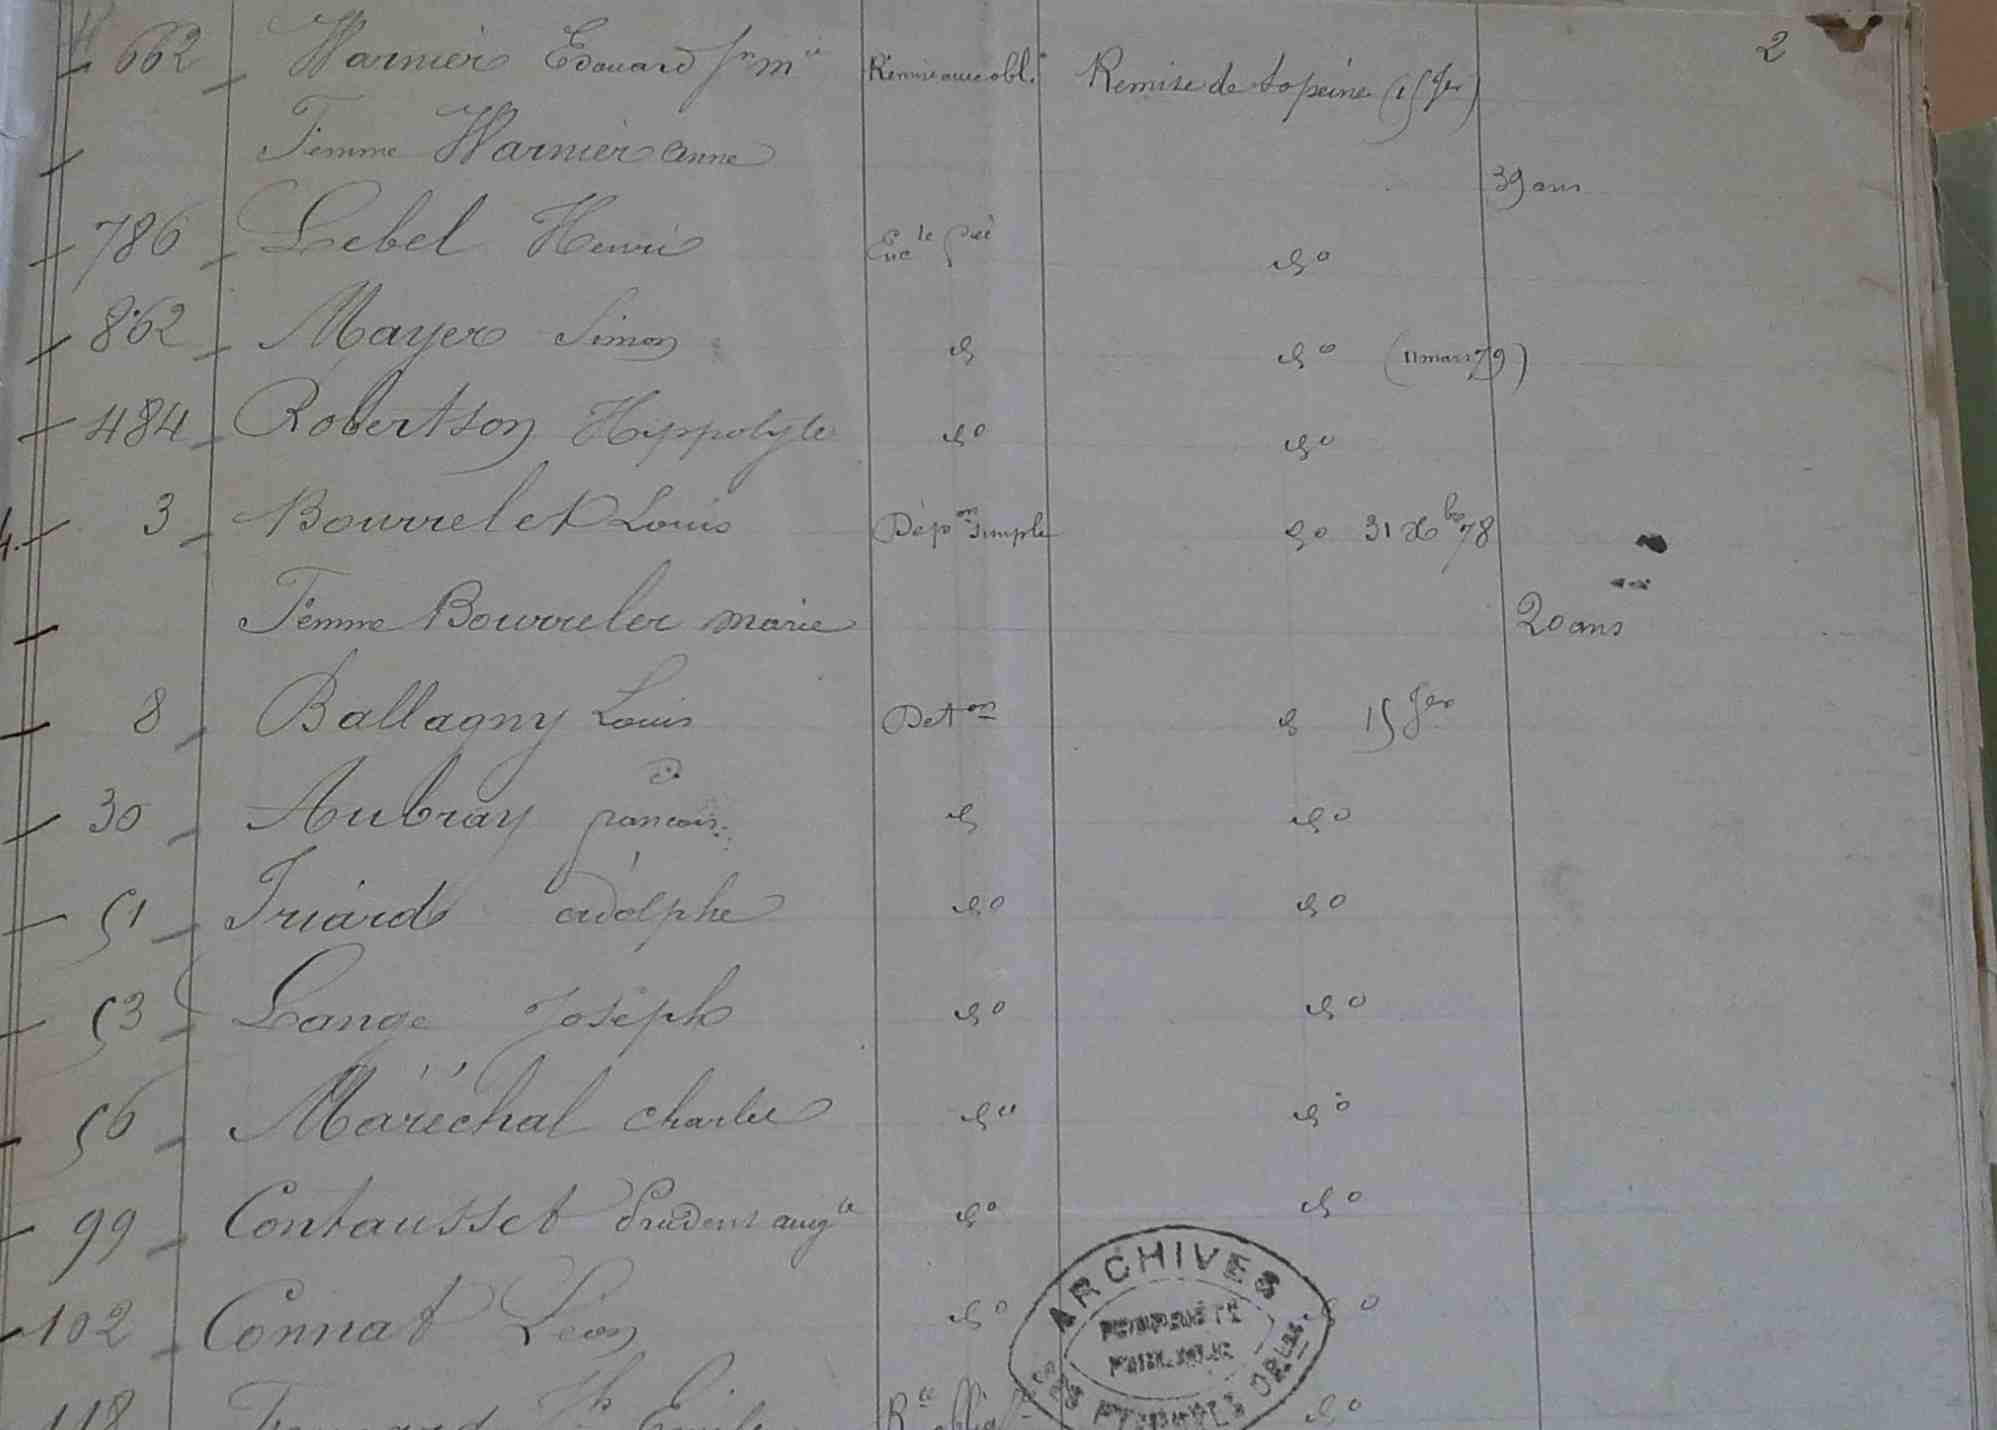 2
662 Warnier Edouard Jn Mie Remise avec obl. Remise de sa peine (15 Jer)
Femme Warnier anne 39 ans
786 Lebel Henri Encte fiée do
862 Mayer Simon d do (11 mars 79)
484 Robertson Hippolyte do do
3 Bourrelet Louis Dépon simple do 31 Xbre 78
Femme Bourrelet marie 20 ans
8 Ballagny Louis Deton d 15 Jer
30 Aubray françois d do
51 Triard adolphe do do
53 Lange Joseph do do
56 Maréchal Charles do do
99 Contausset Prudent augte do do
102 Connat Léon do do
ARCHIVES
PROPRIÉTÉ
PUBLIQUE
118 Emile do